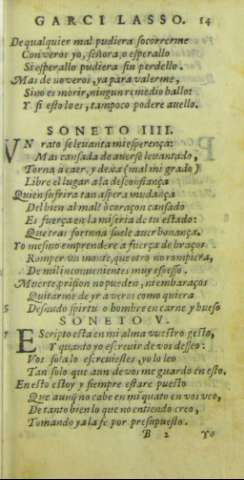 GARCI LASSO. 14
De qualquier mal pudiera socorrerme
Con veros yo, señora, o esperallo
Si esperallo pudiera sin perdello.
Mas de no veros, ya para valerme,
Sino es morir, ningun remedio hallo:
Y si esto lo es, tampoco podere avello.
SONETO IIII.
VN rato se levanta mi esperença:
Mas cansada de averse levantado,
Torna à caer, y dexa (mal mi grado)
Libre el lugar a la desconfiãça
Quien sufrira tan aspera mudãça
Del bien al mal? ò coraçon cansado
Esfuerça en la miseria de tu estado:
Que tras fortuna suele aver bonança.
Yo mesmo emprendere a fuerça de braços
Romper un monte, que otro no rompiera,
De mil inconvenientes muy espesso.
Muerte, prision no pueden, ni embaraços
Quitarme de yr a veros como quiera
Desnudo spiritu o hombre en carne y hueso
SONETO V.
EScripto esta en mi alma vuestro gesto,
Y quanto yo escrevir de vos desseo:
Vos sola lo escrevistes, yo lo leo
Tan solo que aun de vos me guardo en esto.
En esto estoy y siempre estare puesto
Que aunq̃ no cabe en mi quato en vos veo,
De tanto bien lo que no entiendo creo,
Tomando ya la fe por presupuesto.
B 2 Yo